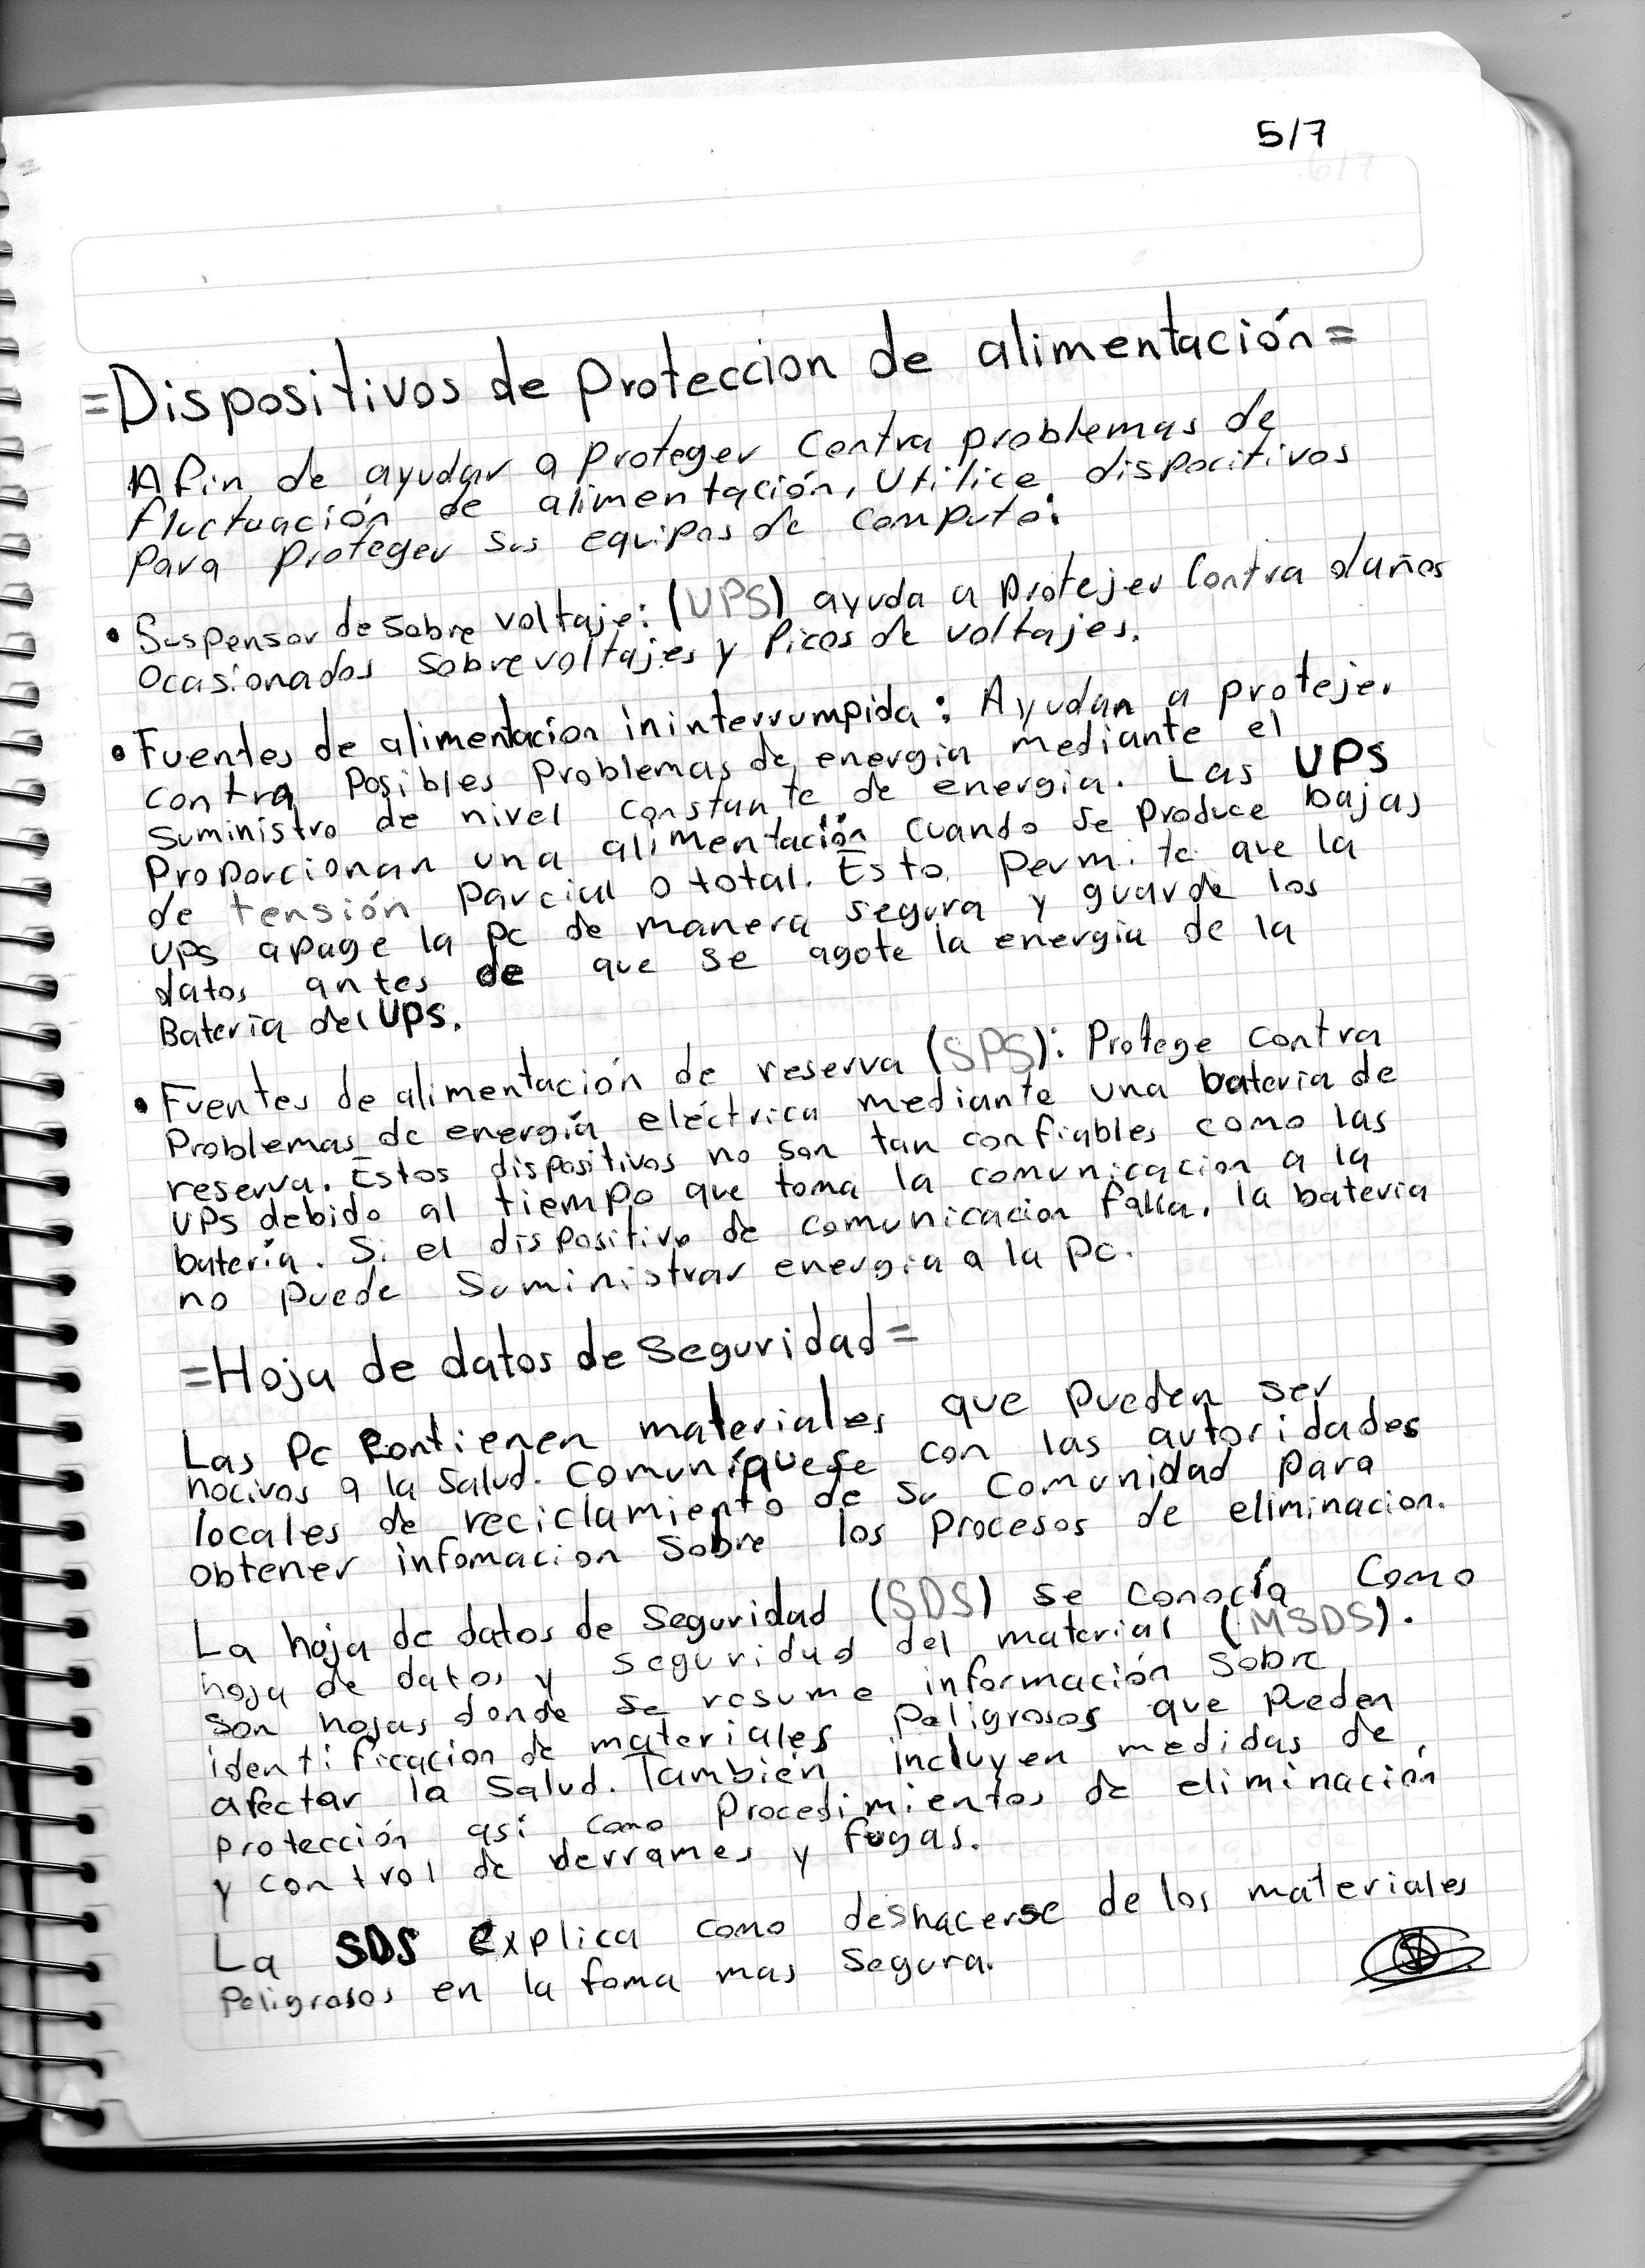 5/7
=Dispositivos de Proteccion de alimentación=
A fin de ayudar a Proteger Contra problemas de
fluctuación de alimentación, Utilice dispocitivos
Para Proteger sus equipos de Computo:
• Suspensor de Sobre voltaje: (UPS) ayuda a Protejer Contra daños
Ocasionados Sobrevoltajes y Picos de voltajes.
• Fuentes de alimentacion ininterrumpida: Ayudan a protejer
contra Posibles Problemas de energia mediante el
Suministro de nivel constante de energia. Las UPS
Proporcionan una alimentación Cuando se Produce bajas
de tensión Parcial o total. Esto Permite que la
UPS apage la Pc de manera segura y guarde los
datos antes de que se agote la energia de la
Bateria del UPS.
• Fuentes de alimentación de reserva (SPS): Protege contra
Problemas de energía eléctrica mediante una bateria de
reserva. Estos dispositivos no son tan confiables como las
UPS debido al tiempo que toma la comunicacion a la
batería. Si el dispositivo de comunicacion falla, la bateria
no puede Suministrar energia a la Pc.
=Hoja de datos de Seguridad=
Las Pc Contienen materiales que Pueden ser
nocivos a la Salud. Comuníquese con las autoridades
locales de reciclamiento de su Comunidad para
obtener infomacion Sobre los Procesos de eliminacion.
La hoja de datos de Seguridad (SDS) se conocía Como
hoja de datos y seguridad del material (MSDS).
Son hojas donde se resume información Sobre
identificacion de materiales Peligrosos que Pueden
afectar la Salud. También incluyen medidas de
protección así como Procedimientos de eliminación
y control de derrames y fugas.
La SDS Explica como deshacerse de los materiales
Peligrosos en la foma mas Segura.